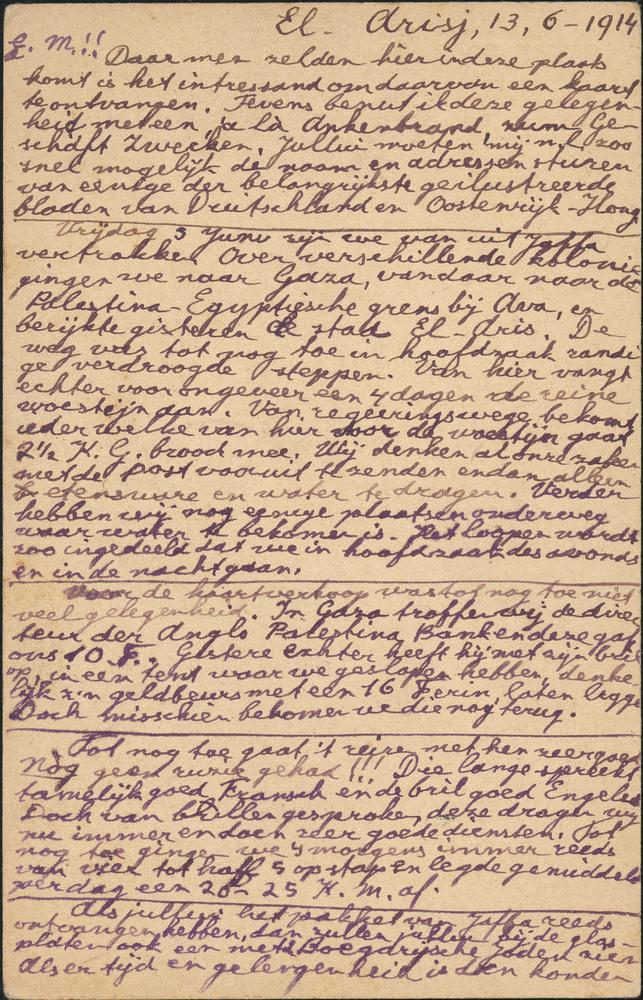 El-Arisj, 13, 6-1914
G. M.!! Daar men zelden hier indeze plaats
komt is het intressand om daarvan een kaart
te ontvangen. Tevens benut ik deze gelegen-
heid met een, a là Ankenbrand, zum Ge-
schäft Zwecken. Jullui moeten mij n.l. zoo
snel mogelijk de naam en adressen sturen
van eenige der belangrijkste geilustreerde
bladen van Duitschland en Oostenrijk-Hong
Vrijdag 5 Yuni zijn we van uit Jaffa
vertrokken Over verschillende kolonie
gingen we naar Gaza, vandaar naar de
Palestina-Egyptische grens bij Ava, en
berijkte gisteren de stad El-Aris. De
weg was tot nog toe in hoofdzaak zandi
ge verdroogde steppen. Van hier vangt
echter voor ongeveer een 4 dagen de reine
woestijn aan. Van regeeringswege bekomt
ieder welke van hier door de woestijn gaat
2½ K.G. brood mee. Wij denken al onze zaken
met de post vooruit te zenden en dan alleen
etensware en water te dragen. Verder
hebben wij nog eenige plaatsen onderweg
waar water te bekomen is. Het loopen wordt
zoo ingedeeld dat we in hoofdzaak des avonds
en in de nacht gaan.
Voor de kaartverkoop was tot nog toe niet
veel gelegenheid. In Gaza troffen wij de direc
teur der Anglo Palestina Bank en deze gaf
ons 10 F. Gistere echter heeft hij met zijn bril
op, in een tent waar we geslapen hebben, denke
lijk z'n geldbeurs met een 16 F. erin, laten ligge
Doch misschien bekomen we die nog terug.
Tot nog toe gaat 't reize met hen zeer goed
Nog geen ruzie gehad!!! Die lange spreekt
tamelijk goed Fransch en de bril goed Engels
Doch van brillen gesproke, deze dragen wij
nu immer en doen zeer goede diensten. Tot
nog toe ginge we 's morgens immer reeds
van vier tot half 5 op stap en legde gemiddeld
per dag een 20-25 K.M. af.
Als jullui het pakket van Jaffa reeds
ontvangen hebben, dan zullen jullui bij de glas-
platen ook een met Boegarijsche Joden zien
Als er tijd en gelegenheid is dan konden